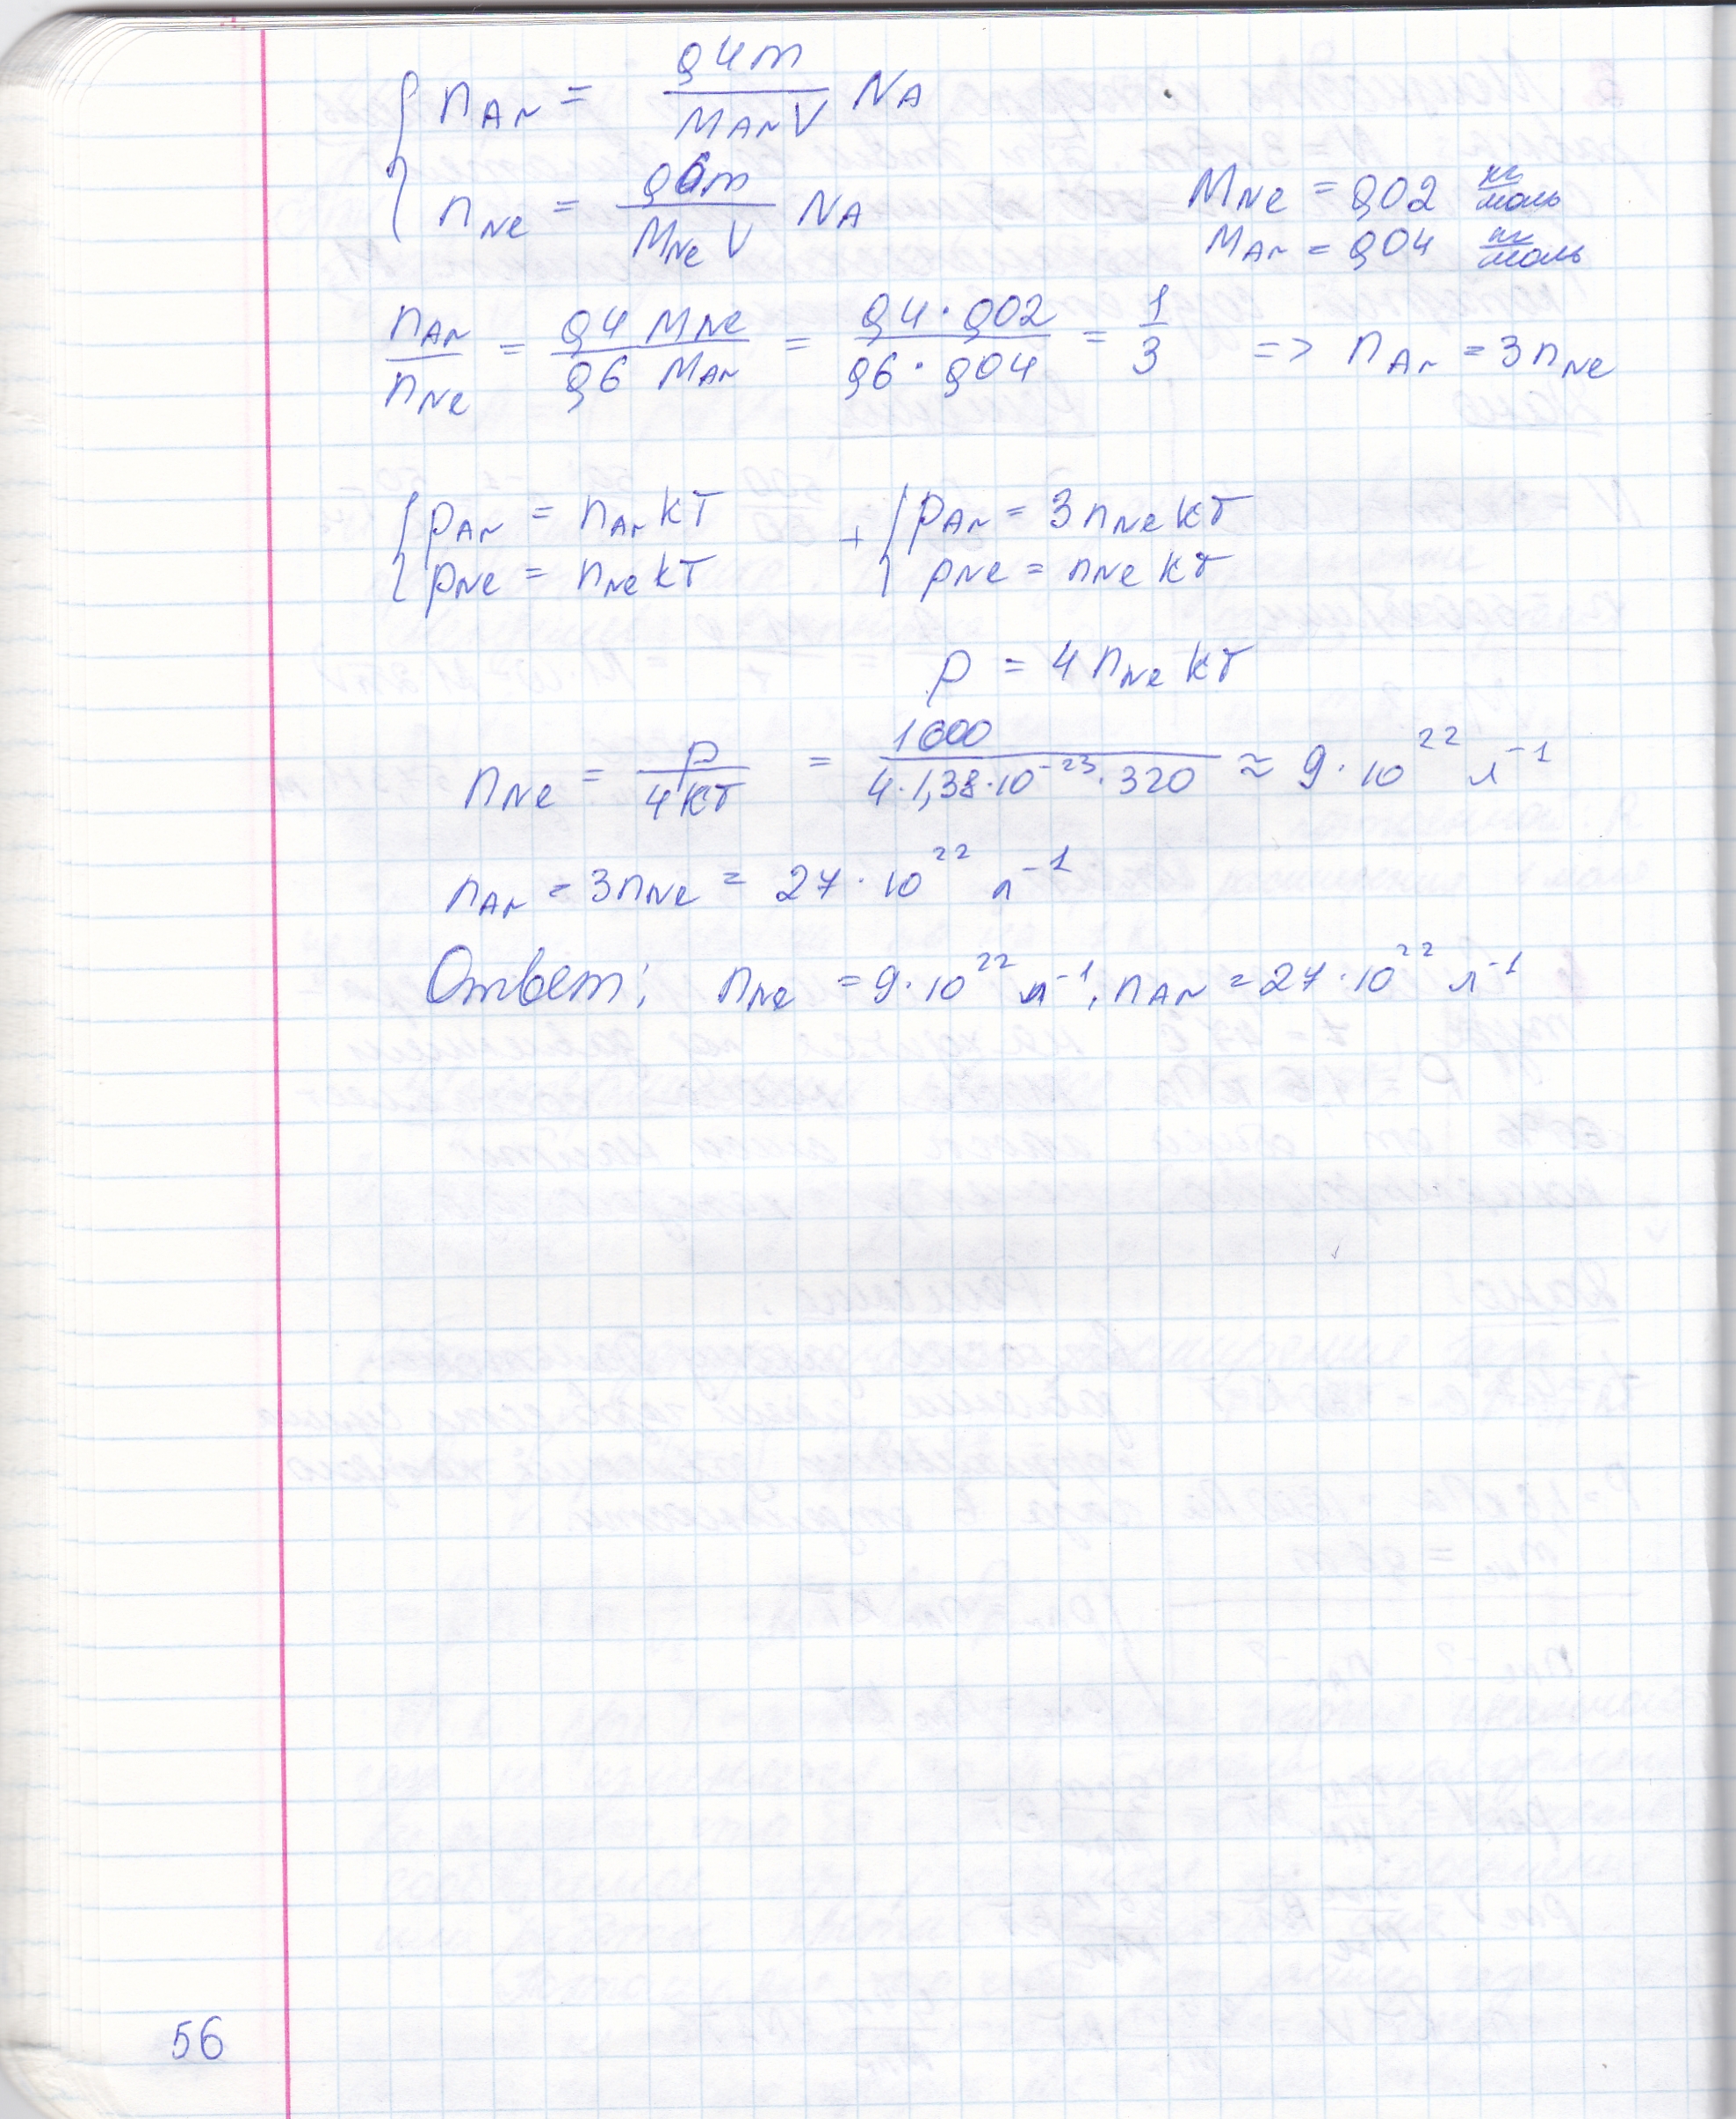 { n_Ar = 0,4m / (M_Ar V) N_A
{ n_Ne = 0,6m / (M_Ne V) N_A
M_Ne = 0,02 кг/моль
M_Ar = 0,04 кг/моль
n_Ar / n_Ne = 0,4 M_Ne / 0,6 M_Ar = 0,4 · 0,02 / 0,6 · 0,04 = 1/3 => n_Ar = 3 n_Ne
{ p_Ar = n_Ar kT + { p_Ar = 3 n_Ne kT
{ p_Ne = n_Ne kT { p_Ne = n_Ne kT
p = 4 n_Ne kT
n_Ne = p / 4kT = 1600 / 4·1,38·10^-23·320 ≈ 9·10^22 л^-1
n_Ar = 3n_Ne = 27·10^22 л^-1
Ответ: n_Ne = 9·10^22 л^-1, n_Ar = 27·10^22 л^-1
56